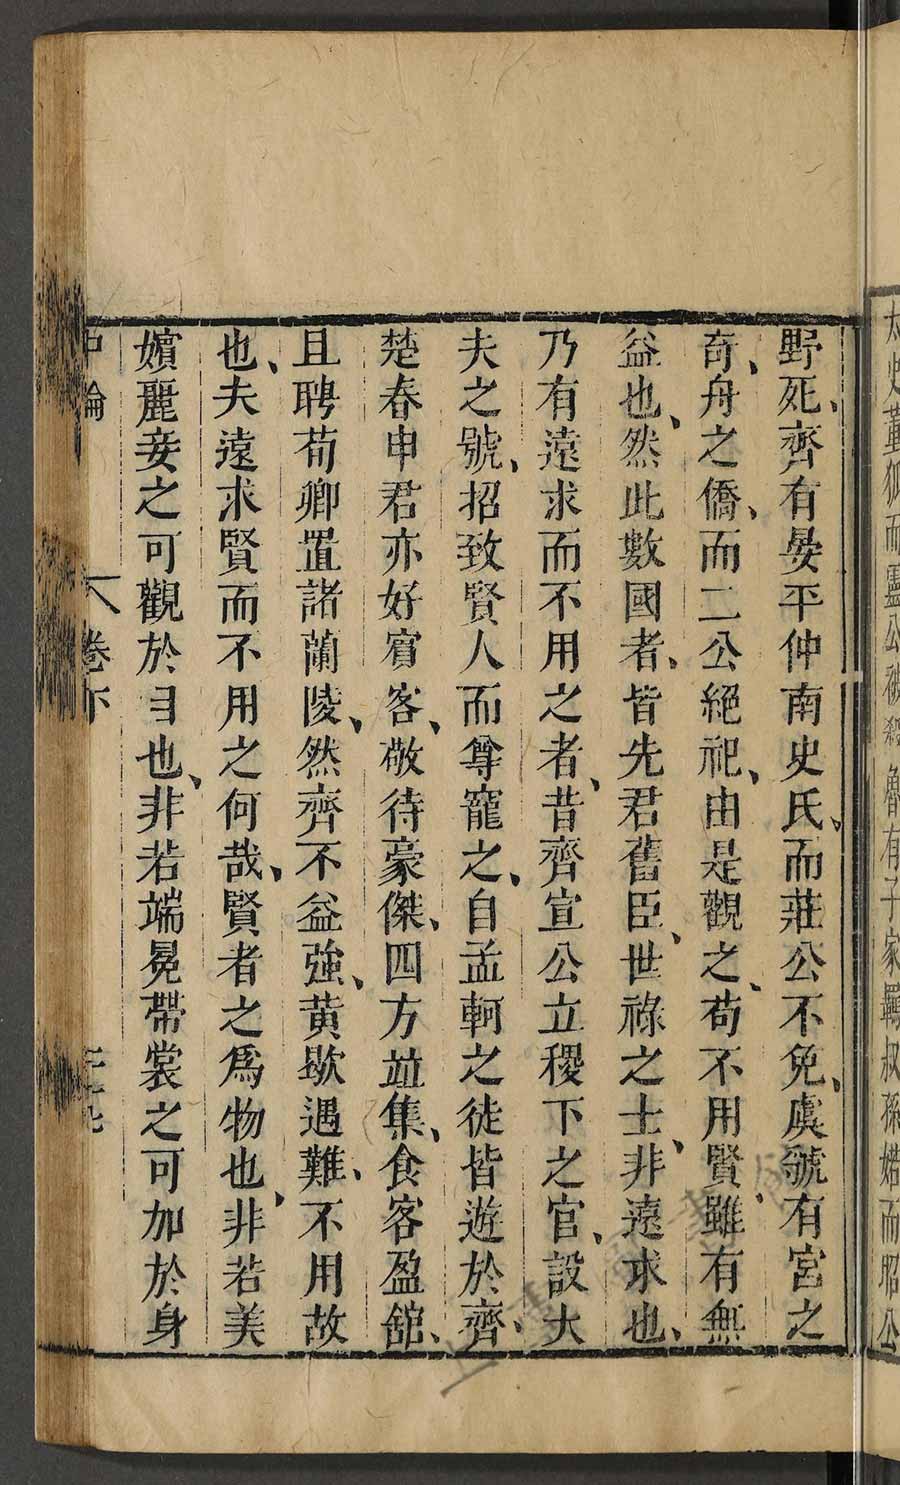 太史董狐而靈公被殺魯有子家羈叔孫婼而昭公
野死、齊有晏平仲南史氏、而莊公不免、虞虢有宮之
奇、舟之僑、而二公絕祀、由是觀之、苟不用賢、雖有無
益也、然此數國者、皆先君舊臣、世祿之士、非遠求也、
乃有遠求而不用之者、昔齊宣公立稷下之官、設大
夫之號、招致賢人而尊寵之、自孟軻之徒皆遊於齊、
楚春申君亦好賓客、敬待豪傑、四方竝集、食客盈館、
且聘荀卿置諸蘭陵、然齊不益強、黃歇遇難、不用故
也、夫遠求賢而不用之何哉、賢者之爲物也、非若美
嬪麗妾之可觀於目也、非若端冕帶裳之可加於身
中論 卷下